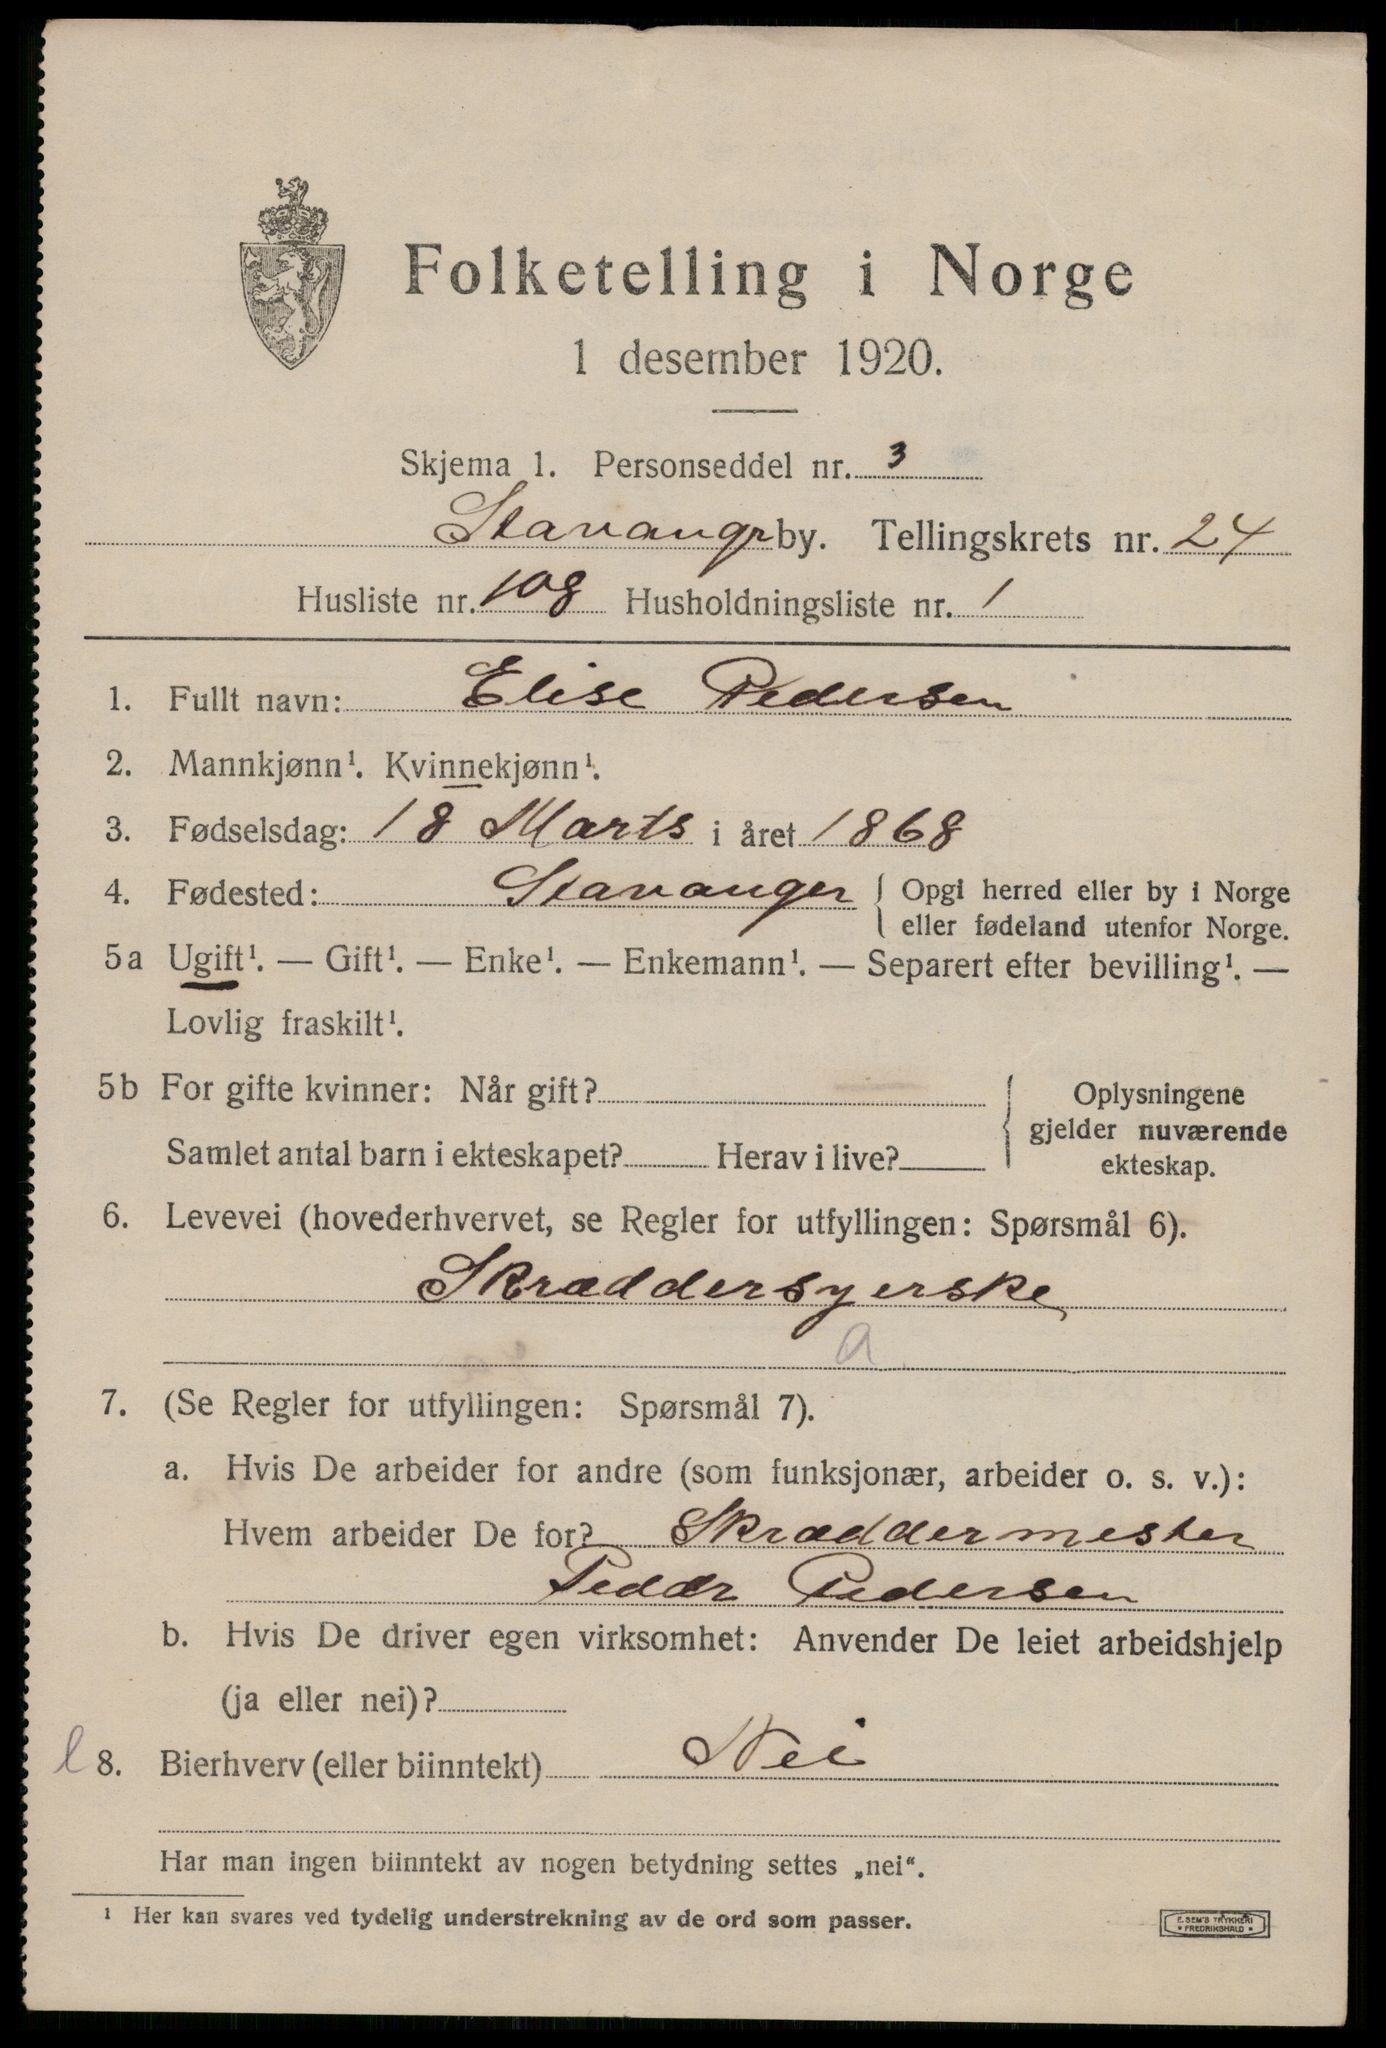 Folketelling i Norge
1 desember 1920.
Skjema 1. Personseddel nr. 3
Stavanger by. Tellingskrets nr. 24
Husliste nr. 108 Husholdningsliste nr. 1
1. Fullt navn: Elise Pedersen
2. Mannkjønn¹. Kvinnekjønn¹.
3. Fødselsdag: 18 Marts i året 1868
4. Fødested: Stavanger { Opgi herred eller by i Norge
eller fødeland utenfor Norge.
5a Ugift¹. — Gift¹. — Enke¹. — Enkemann¹. — Separert efter bevilling¹. —
Lovlig fraskilt¹.
5b For gifte kvinner: Når gift? { Oplysningene
gjelder nuværende
Samlet antal barn i ekteskapet? Herav i live? ekteskap.
6. Levevei (hovederhvervet, se Regler for utfyllingen: Spørsmål 6).
Skræddersyerske
a
7. (Se Regler for utfyllingen: Spørsmål 7).
a. Hvis De arbeider for andre (som funksjonær, arbeider o. s. v.):
Hvem arbeider De for? Skræddermester
Peder Pedersen
b. Hvis De driver egen virksomhet: Anvender De leiet arbeidshjelp
(ja eller nei)?
l 8. Bierhverv (eller biinntekt) Nei
Har man ingen biinntekt av nogen betydning settes „nei“.
¹ Her kan svares ved tydelig understrekning av de ord som passer.
E. SEM'S TRYKKERI
* FREDRIKSHALD *